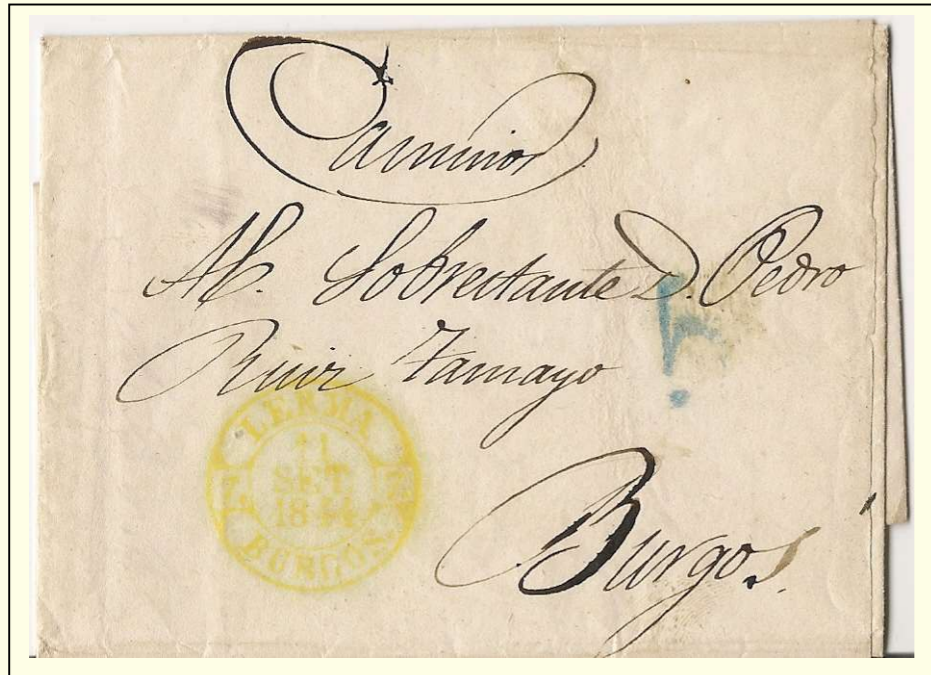 Caminos
Al. Sobrestante D. Pedro
Ruiz Tamayo
Burgos
LERMA
SET
1844
BURGOS.